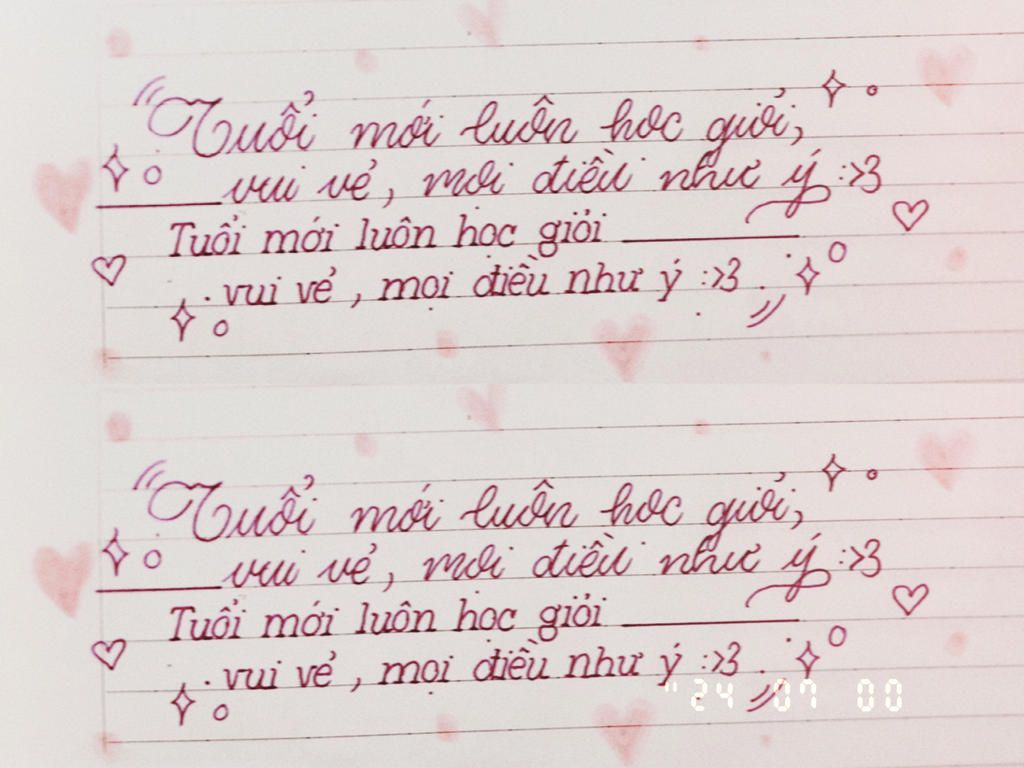 "Tuổi mới luôn học giỏi,
vui vẻ, mọi điều như ý :>3
Tuổi mới luôn học giỏi
vui vẻ, mọi điều như ý :>3."
"Tuổi mới luôn học giỏi,
vui vẻ, mọi điều như ý :>3
Tuổi mới luôn học giỏi
vui vẻ, mọi điều như ý :>3."
" 24 07 00